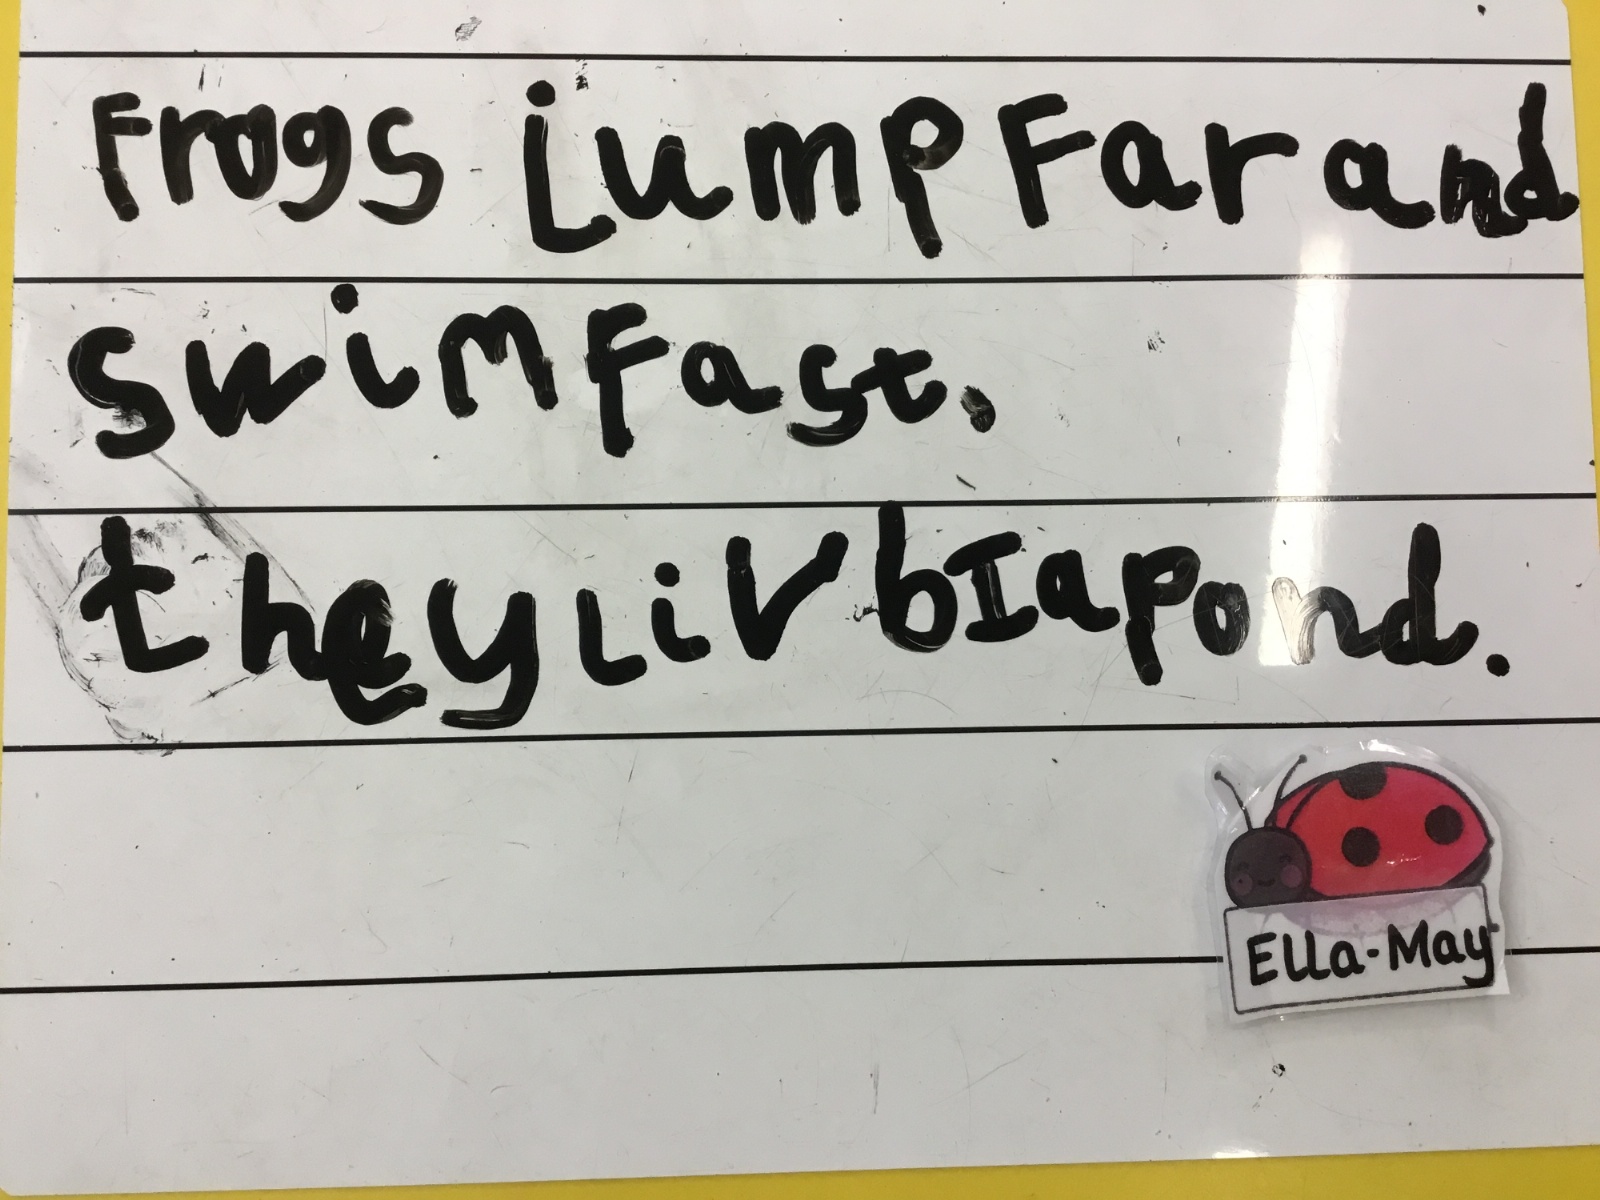 Frogs jump Far and
swim Fast.
they liv bI a pond.
Ella-May